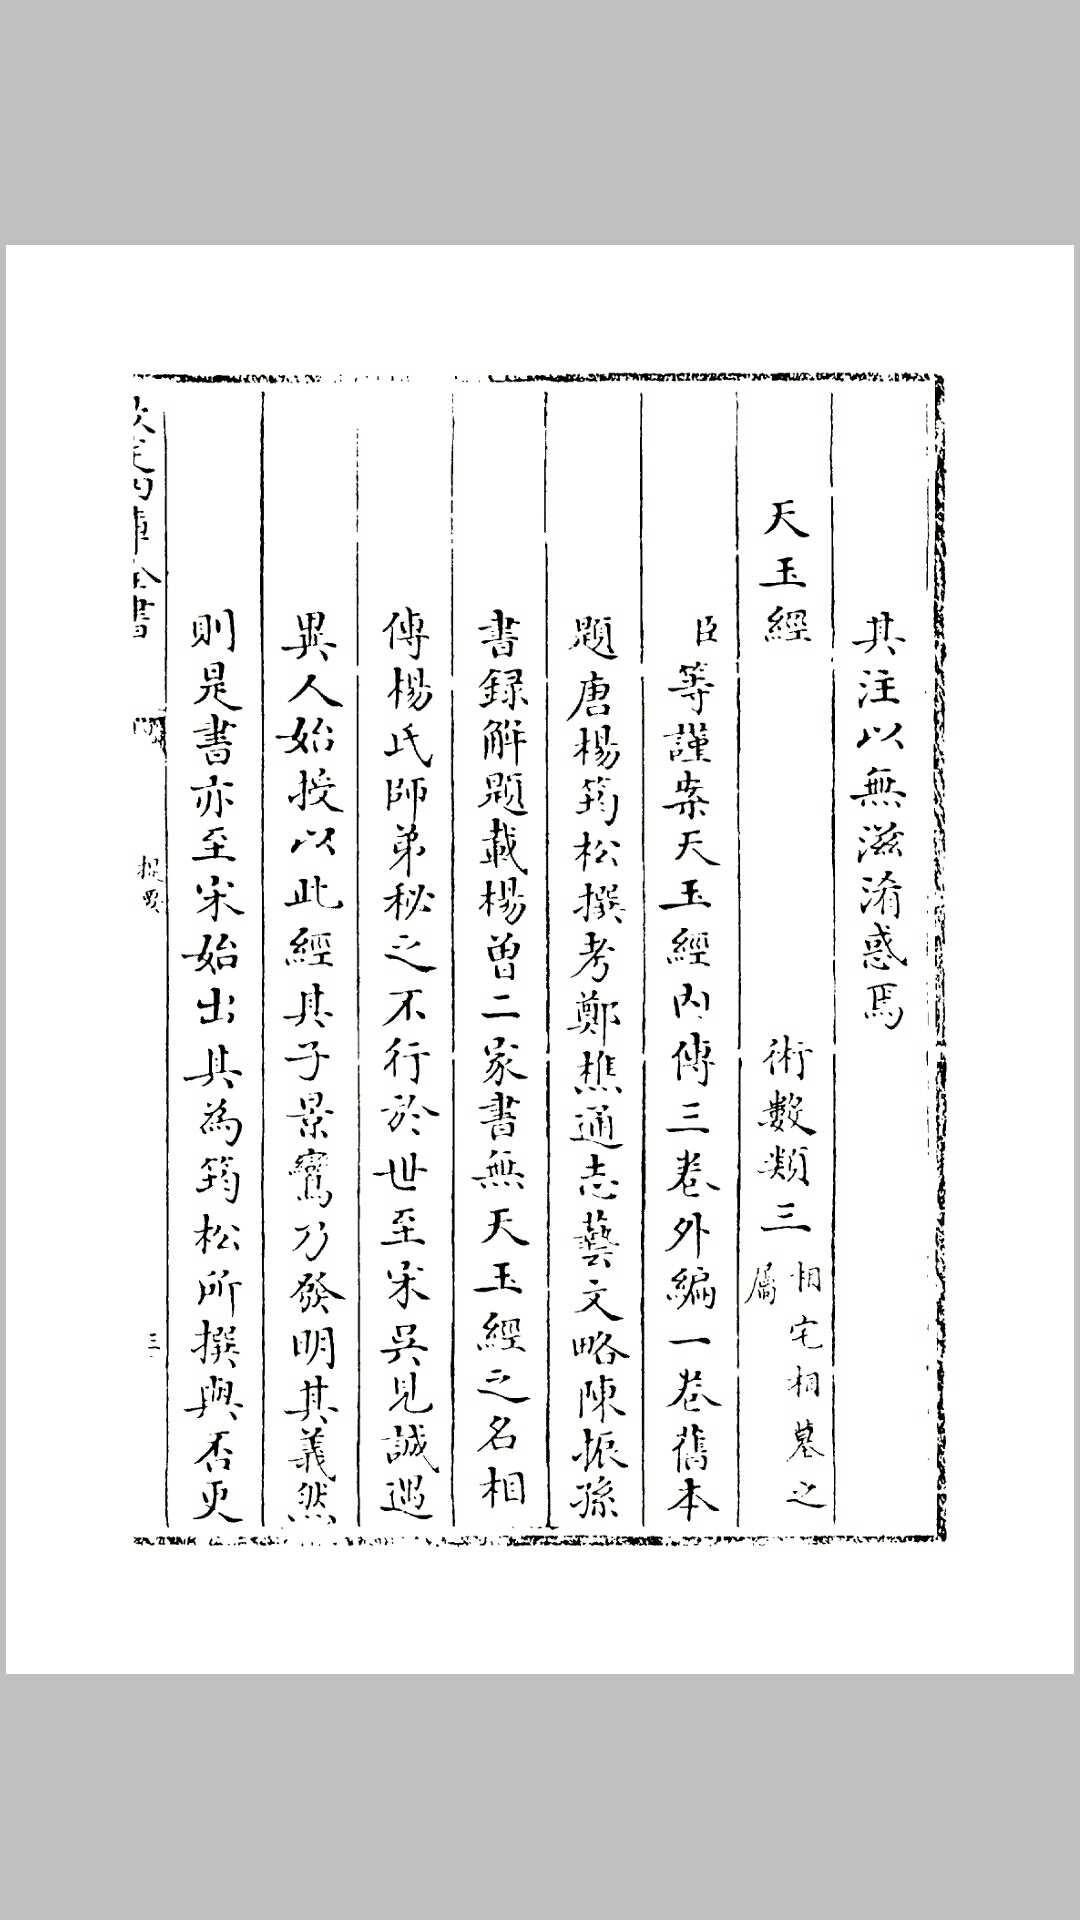 其注以無滋淆惑焉
天玉經 術數類三 相宅相墓之
屬
臣等謹案天玉經内傳三卷外編一卷舊本
題唐楊筠松撰考鄭樵通志藝文略陳振孫
書録解題載楊曾二家書無天玉經之名相
傳楊氏師弟秘之不行於世至宋吳見誠遇
異人始授以此經其子景鸞乃發明其義然
則是書亦至宋始出其為筠松所撰與否更
欽定四庫全書
提要
三